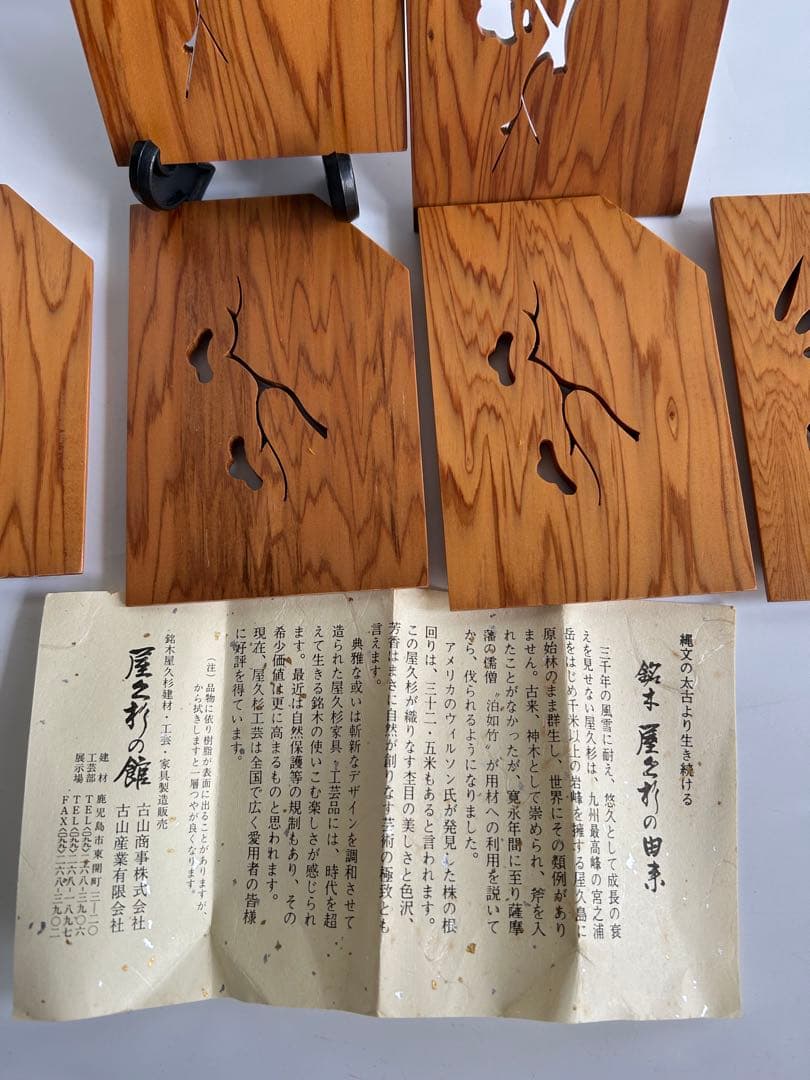 縄文の太古より生き続ける
銘木 屋久杉の由来
三千年の風雪に耐え、悠久として成長の衰
えを見せない屋久杉は、九州最高峰の宮之浦
岳をはじめ千米以上の岩峰を擁する屋久島に
原始林のまま群生し、世界にその類例があり
ません。古来、神木として崇められ、斧を入
れたことがなかったが、寛永年間に至り薩摩
藩の儒僧〝泊如竹〟が用材への利用を説いて
から、伐られるようになりました。
アメリカのウィルソン氏が発見した株の根
回りは、三十二・五米もあると言われます。
この屋久杉が織りなす杢目の美しさと色沢、
芳香はまさに自然が創りなす芸術の極致とも
言えます。
典雅な或いは斬新なデザインを調和させて
造られた屋久杉家具・工芸品には、時代を超
えて生きる銘木の使いこむ楽しさが感じられ
ます。最近は自然保護等の規制もあり、その
希少価値は更に高まるものと思われます。
現在、屋久杉工芸は全国で広く愛用者の皆様
に好評を得ています。
(注) 品物に依り樹脂が表面に出ることがありますが、
から拭きしますと一層つやが良くなります。
銘木屋久杉建材・工芸・家具製造販売
屋久杉の館
古山商事株式会社
古山産業有限会社
建材 鹿児島市東開町三—二〇
工芸部 TEL〈〇九九〉二六八—三九〇六
展示場 TEL〈〇九九〉二六八—一八九七
FAX〈〇九九〉二六八—三九〇二